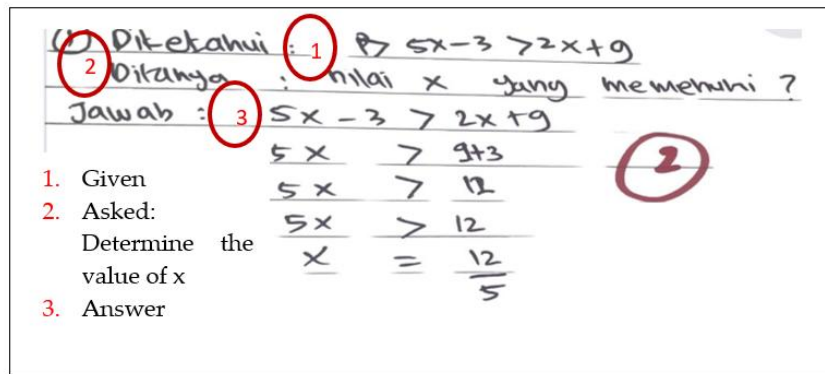 (1) Diketahui : 1 P> 5x-3 > 2x+9
2 Ditanya : nilai x yang memenuhi ?
Jawab : 3 5x - 3 > 2x +9
5x > 9+3
5x > 12
5x > 12
x = 12/5
2
1. Given
2. Asked:
Determine the
value of x
3. Answer